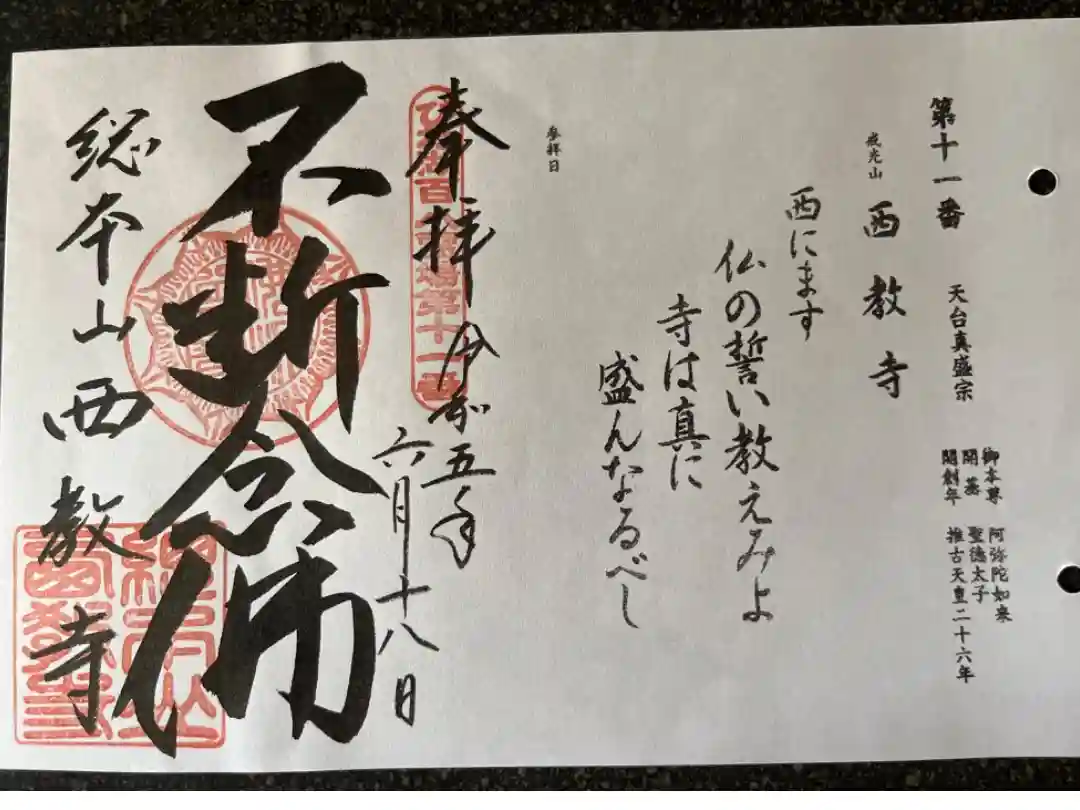 第十一番 天台真盛宗
御本尊 阿弥陀如来
開基 聖徳太子
開創年 推古天皇二十六年
戒光山 西教寺
西にます
仏の誓い教えみよ
寺は真に
盛んなるべし
参拝日
奉拝 令和五年
六月十八日
不断念佛
総本山西教寺